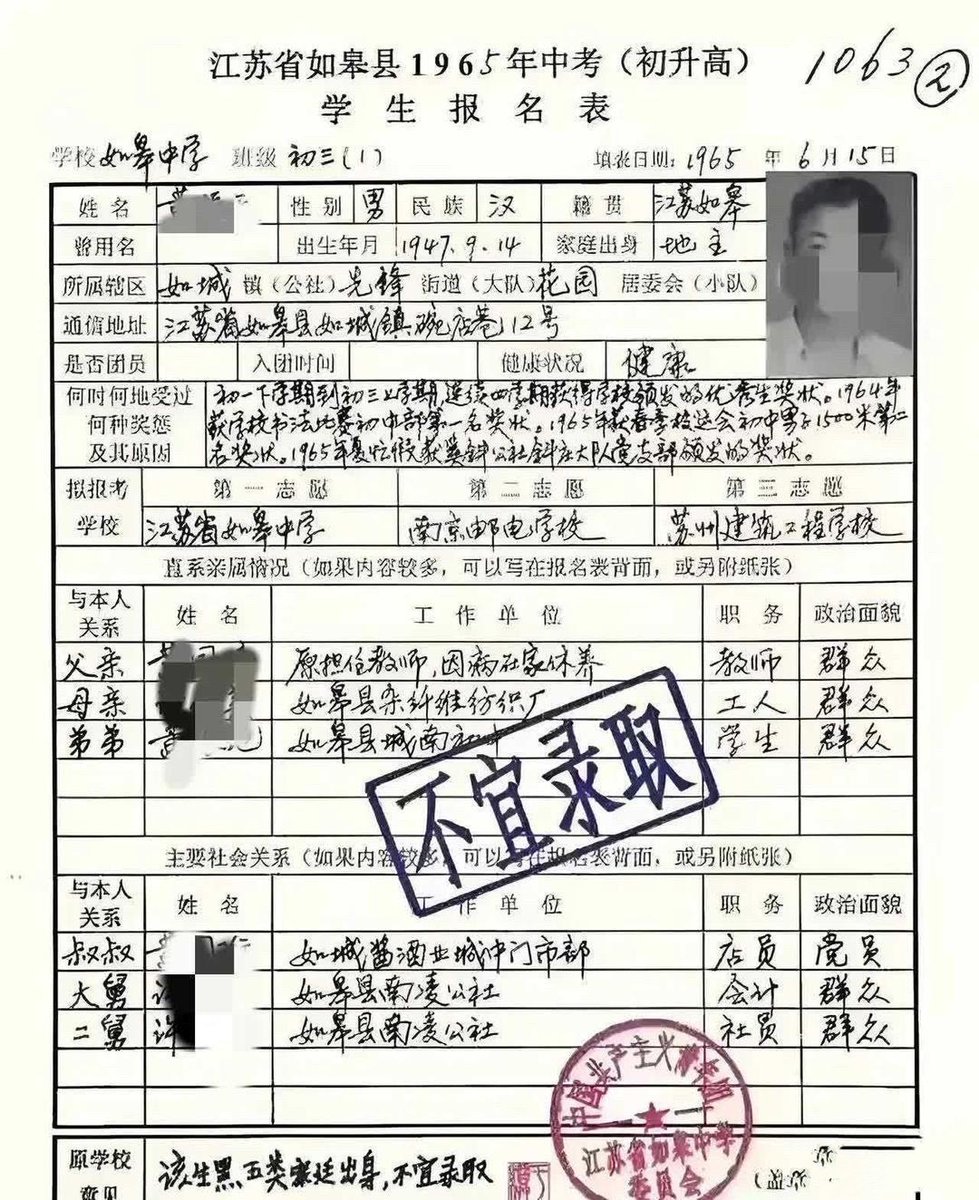 江苏省如皋县1965年中考（初升高）
1063 ②
学生报名表
学校 如皋中学 班级 初三(1) 填表日期：1965年6月15日
姓名 黄 性别 男 民族 汉 籍贯 江苏如皋
曾用名 出生年月 1947.9.14 家庭出身 地主
所属辖区 如城 镇（公社）先锋 街道（大队）花园 居委会（小队）
通信地址 江苏省如皋县如城镇碗店巷12号
是否团员 入团时间 健康状况 健康
何时何地受过 初一下学期到初三上学期，连续四学期获得学校颁发的优秀生奖状。1964年
何种奖惩 获学校书法比赛初中部第一名奖状。1965年获春季校运会初中男子1500米第二
及其原因 名奖状。1965年夏忙假获 斜公社斜庄大队党支部颁发的奖状。
拟报考 第一志愿 第二志愿 第三志愿
学校 江苏省如皋中学 南京邮电学校 苏州建筑工程学校
直系亲属情况（如果内容较多，可以写在报名表背面，或另附纸张）
与本人关系 姓名 工作单位 职务 政治面貌
父亲 原担任教师，因病在家休养 教师 群众
母亲 如皋县杂纤维纺织厂 工人 群众
弟弟 黄 如皋县城南初中 学生 群众
不宜录取
主要社会关系（如果内容较多，可以写在报名表背面，或另附纸张）
与本人关系 姓名 工作单位 职务 政治面貌
叔叔 黄 如城酱酒业城中门市部 店员 党员
大舅 许 如皋县南凌公社 会计 群众
二舅 许 如皋县南凌公社 社员 群众
中国共产主义青年团
江苏省如皋中学
委员会
原学校 该生黑五类家庭出身，不宜录取
意见 （盖章）